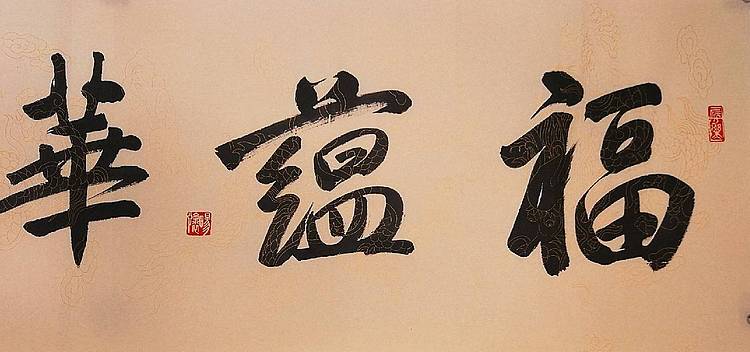 福蘊華